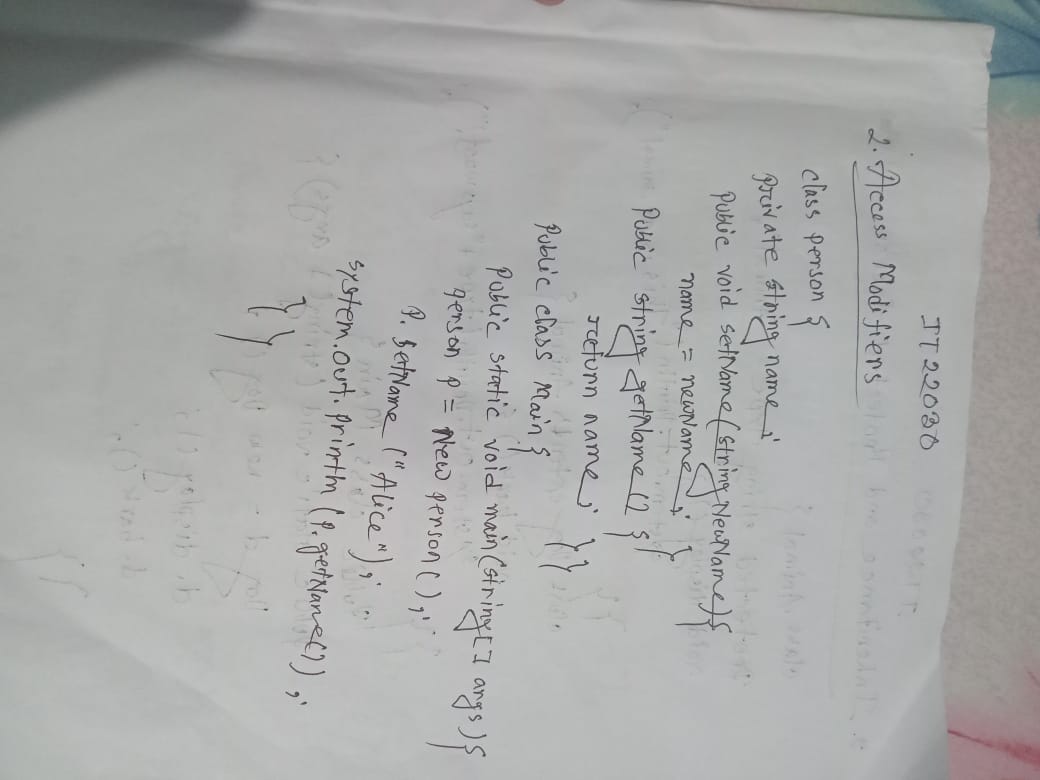 IT 22030
2. Access Modifiers
class person {
private string name;
public void setName(string NewName) {
name = newName; }
Public string getName() {
return name; } }
Public class Main {
Public static void main(string[] args) {
person p = New person();
P. setName ("Alice");
system.out.println (P.getName());
} }